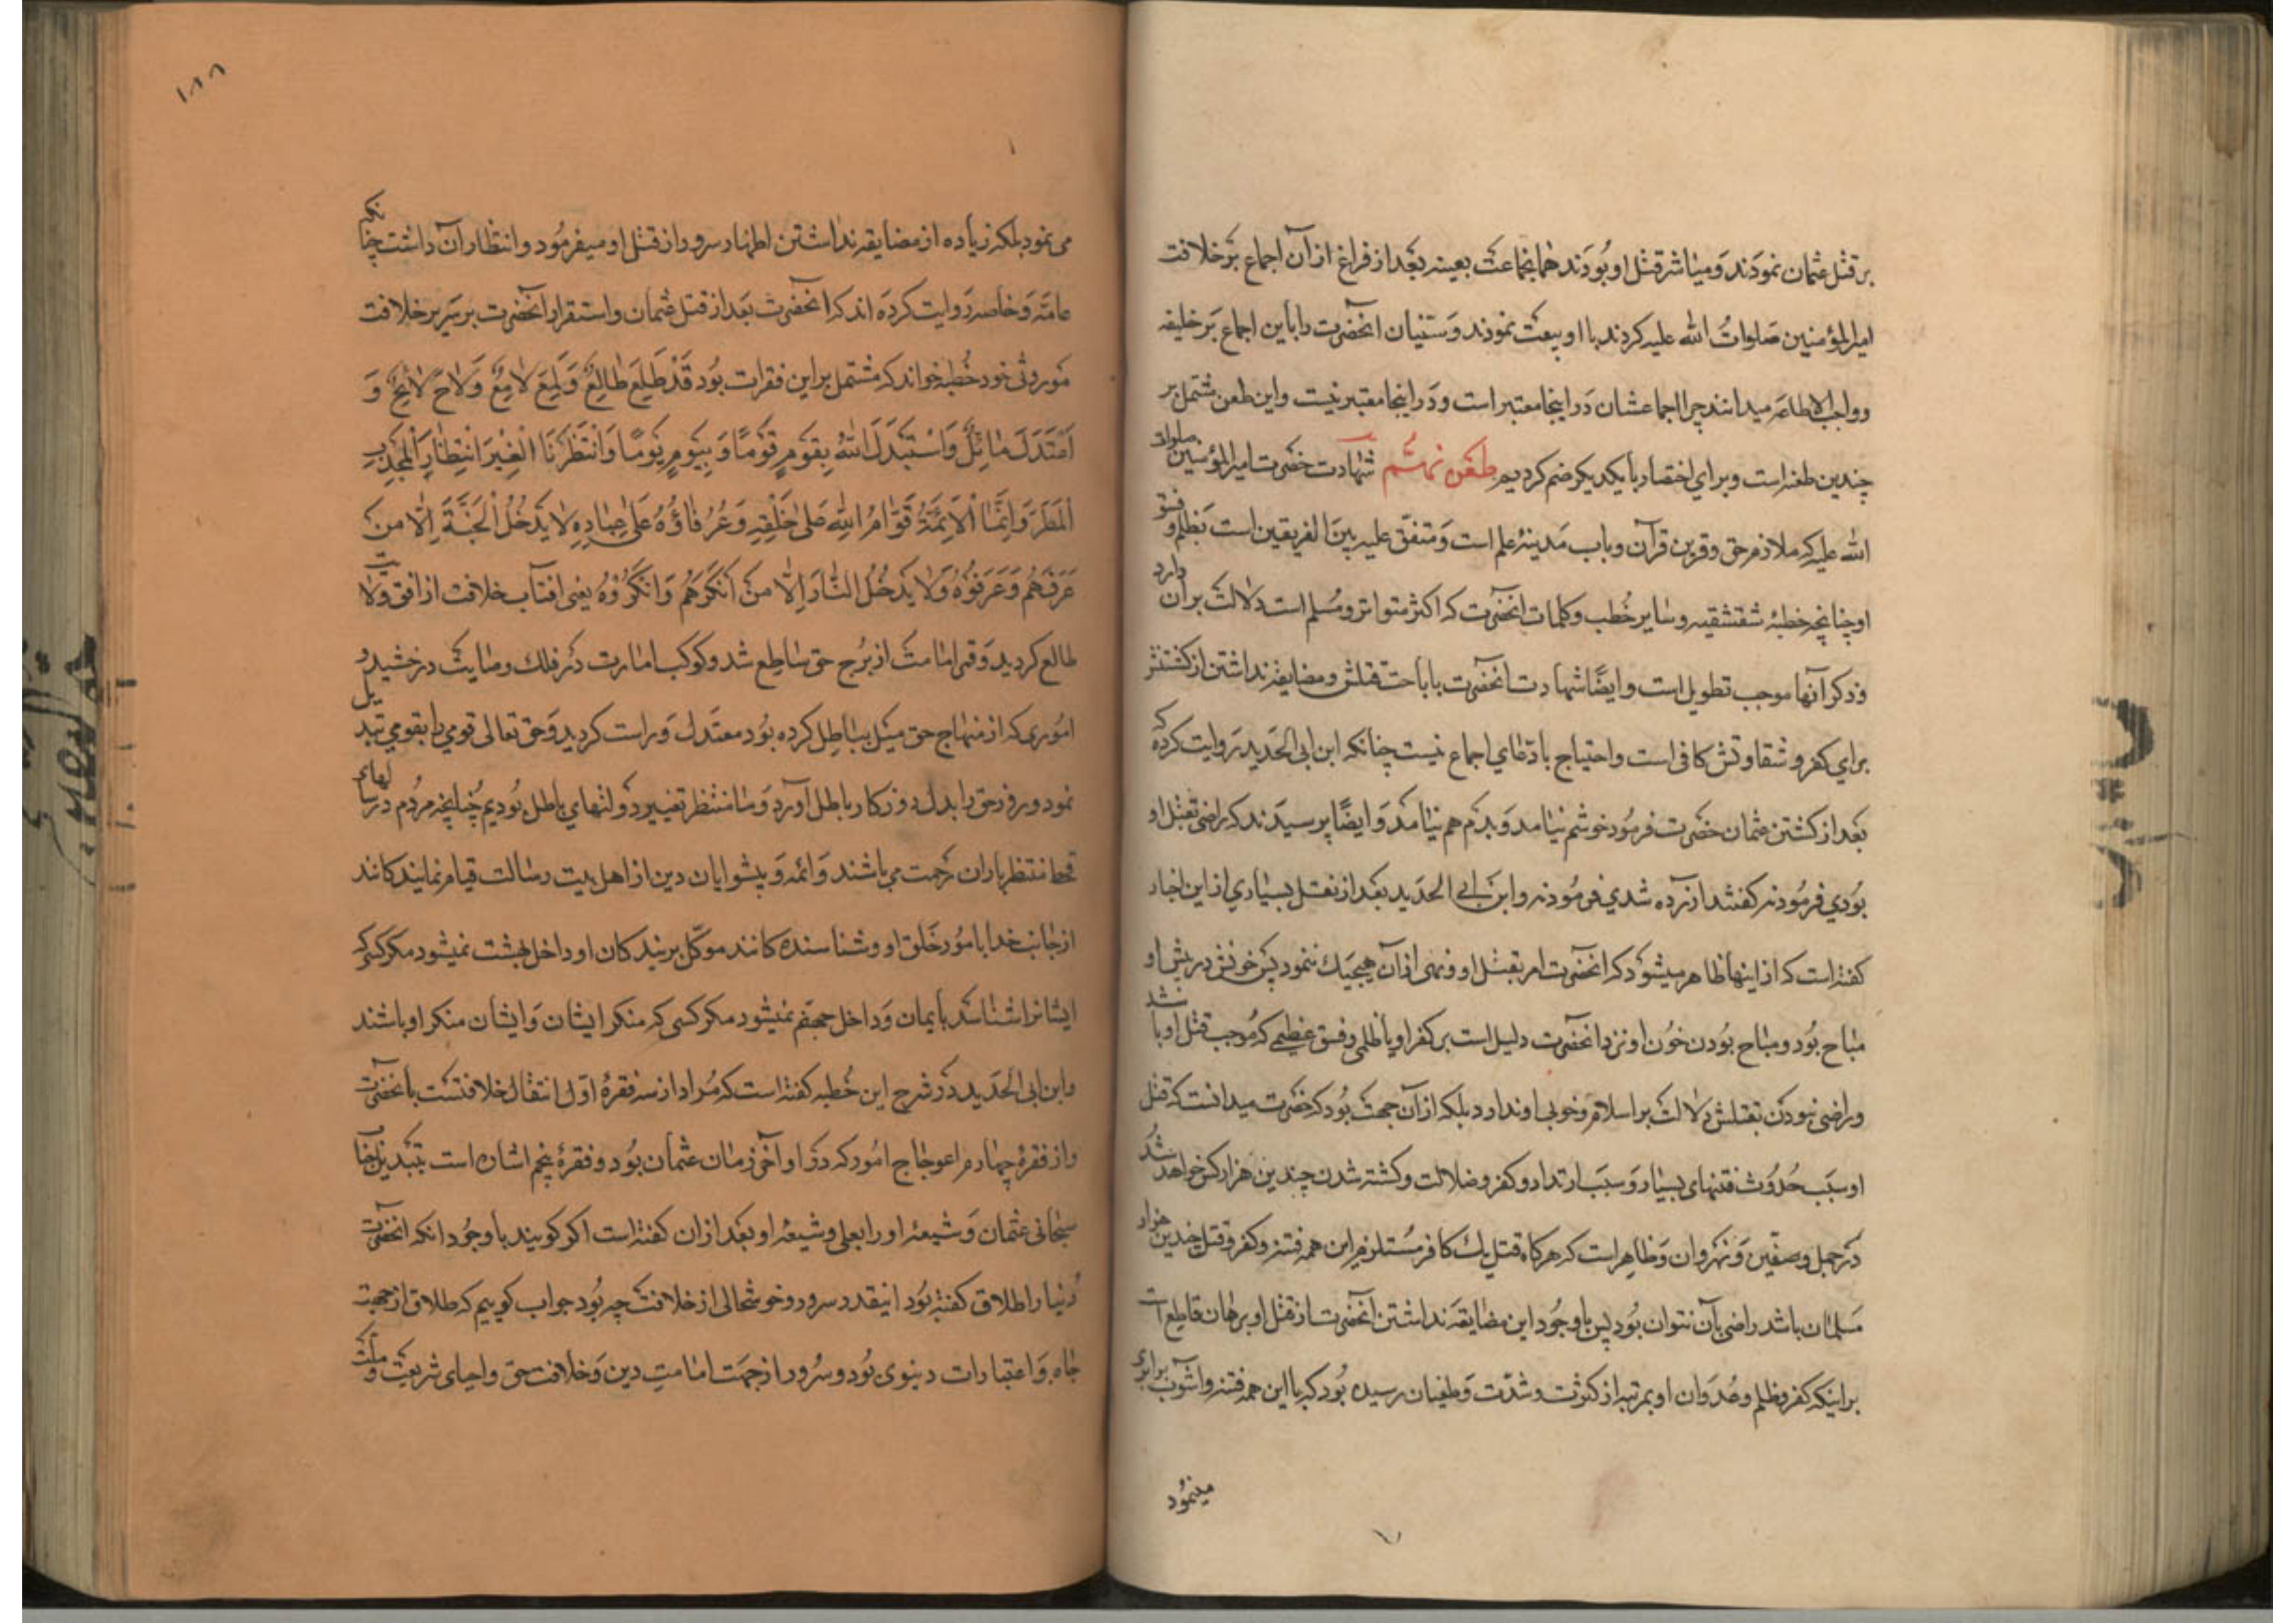 بر قتل عثمان نمودند و مباشر قتل او بودند همانجماعت بعینه بعد از فراغ از آن اجماع بر خلافت
امیرالمؤمنین صلوات الله علیه کردند با او بیعت نمودند و سنیان انحضرت را باین اجماع بر خلیفه
و واجب الاطاعه میدانند چرا اجماعشان در اینجا معتبر است و در اینجا معتبر نیست و این طعن مشتمل بر
چندین طعنه است و برای اختصار با یکدیگر ضم کردیم طعن نهم شهادت حضرت امیرالمؤمنین صلوات
الله علیه که ملازم حق و قرین قرآن و باب مدینهٔ علم است و متفق علیه بین الفریقین است بظلم و فسق
او چنانچه خطبهٔ شقشقیه و سایر خطب و کلمات انحضرت که اکثر متواتر و مسلم است دلالت بر آن دارد
و ذکر آنها موجب تطویل است و ایضًا شهادت انحضرت باباحت قتلش و مضایقه نداشتن از کشتنش
برای کفر و شقاوتش کافی است و احتیاج بادعای اجماع نیست چنانکه ابن ابی الحدید روایت کرده که
بعد از کشتن عثمان حضرت فرمود خوشم نیامد و بدم هم نیامد و ایضًا پرسیدند که راضی بقتل او
بودی فرمود نه گفتند آزرده شدی فرمود نه و ابن ابی الحدید بعد از نقل بسیاری از این اخبار
گفته است که از اینها ظاهر میشود که انحضرت امر بقتل او و نهی از آن هیچیک ننمود پس خونش در پیش او
مباح بود و مباح بودن خون او نزد انحضرت دلیل است بر کفر او یا ظلمی و فسق عظیمی که موجب قتل او باشد
و راضی نبودن بقتلش دلالت بر اسلام و خوبی او ندارد بلکه از آن جهت بود که حضرت میدانست که قتل
او سبب حدوث فتنهای بسیار و سبب ارتداد و کفر و ضلالت و کشته شدن چندین هزار کس خواهد شد
در جمل و صفین و نهروان و ظاهر است که هرگاه قتل یک کافر مستلزم این همه فتنه و کفر و قتل چندین هزار
مسلمان باشد راضی بآن نتوان بود پس با وجود این مضایقه نداشتن آنحضرت از قتل او برهان قاطع است
بر اینکه کفر و ظلم و عدوان او بمرتبه از کثرت و شدت و طغیان رسیده بود که با این همه فتنه و آشوب برابری
مینمود
۱۸۸
می نمود بلکه زیاده از مضایقه نداشتن اظهار سرور از قتل او میفرمود و انتظار آن داشت چنانکه
عامه و خاصه روایت کرده اند که انحضرت بعد از قتل عثمان و استقرار انحضرت بر سریر خلافت
موروثی خود خطبه خواند که مشتمل بر این فقرات بود قَدْ طَلَعَ طالِعٌ وَلَمَعَ لامِعٌ وَلاحَ لائِحٌ وَ
اعْتَدَلَ مائِلٌ وَاسْتَبْدَلَ اللهُ بِقَومٍ قَومًا وَبِیَومٍ یَومًا وَانْتَظَرْنَا الْغِیَرَ انْتِظارَ الْمُجْدِبِ
الْمَطَرَ وَاِنَّمَا الْاَئِمَّةُ قُوّامُ اللهِ عَلی خَلْقِهِ وَعُرَفاؤُهُ عَلی عِبادِهِ لا یَدْخُلُ الْجَنَّةَ اِلّا مَن
عَرَفَهُم وَعَرَفُوهُ وَلا یَدْخُلُ النّارَ اِلّا مَنْ اَنْکَرَهُم وَاَنْکَرُوهُ یعنی افتاب خلافت از افق ولایت
طالع گردید و قمر امامت از برج حق ساطع شد و کوکب امارت در فلک وصایت درخشید و
اموری که از منهاج حق میل بباطل کرده بود معتدل و راست گردید و حق تعالی قومی را بقومی تبدیل
نمود و روز حق را بدل روزگار باطل آورد و ما منتظر تغییر دولتهای باطل بودیم چنانچه مردم در سالهای
قحط منتظر باران رحمت می باشند و ائمه و پیشوایان دین از اهل بیت رسالت قیام نمایندگانند
از جانب خدا بامور خلق او و شناسنده گانند موکل بر بندگان او داخل بهشت نمیشود مگر کسی که
ایشانرا شناسد بایمان و داخل جهنم نمیشود مگر کسی که منکر ایشان و ایشان منکر او باشند
و ابن ابی الحدید در شرح این خطبه گفته است که مراد از سه فقرهٔ اول انتقال خلافتست بآنحضرت
و از فقرهٔ چهارم اعوجاج امور که در اواخر زمان عثمان بود و فقرهٔ پنجم اشاره است بتبدیل جناب
سبحانی عثمان و شیعهٔ او را بعلی و شیعهٔ او بعد از ان گفته است اگر گویند با وجود انکه انحضرت
دنیا را طلاق گفته بود اینقدر سرور و خوشحالی از خلافت چه بود جواب گوییم که طلاق از جهت
جاه و اعتبارات دنیوی بود و سرور از جهت امامت دین و خلافت حق و احیای شریعت و ملت